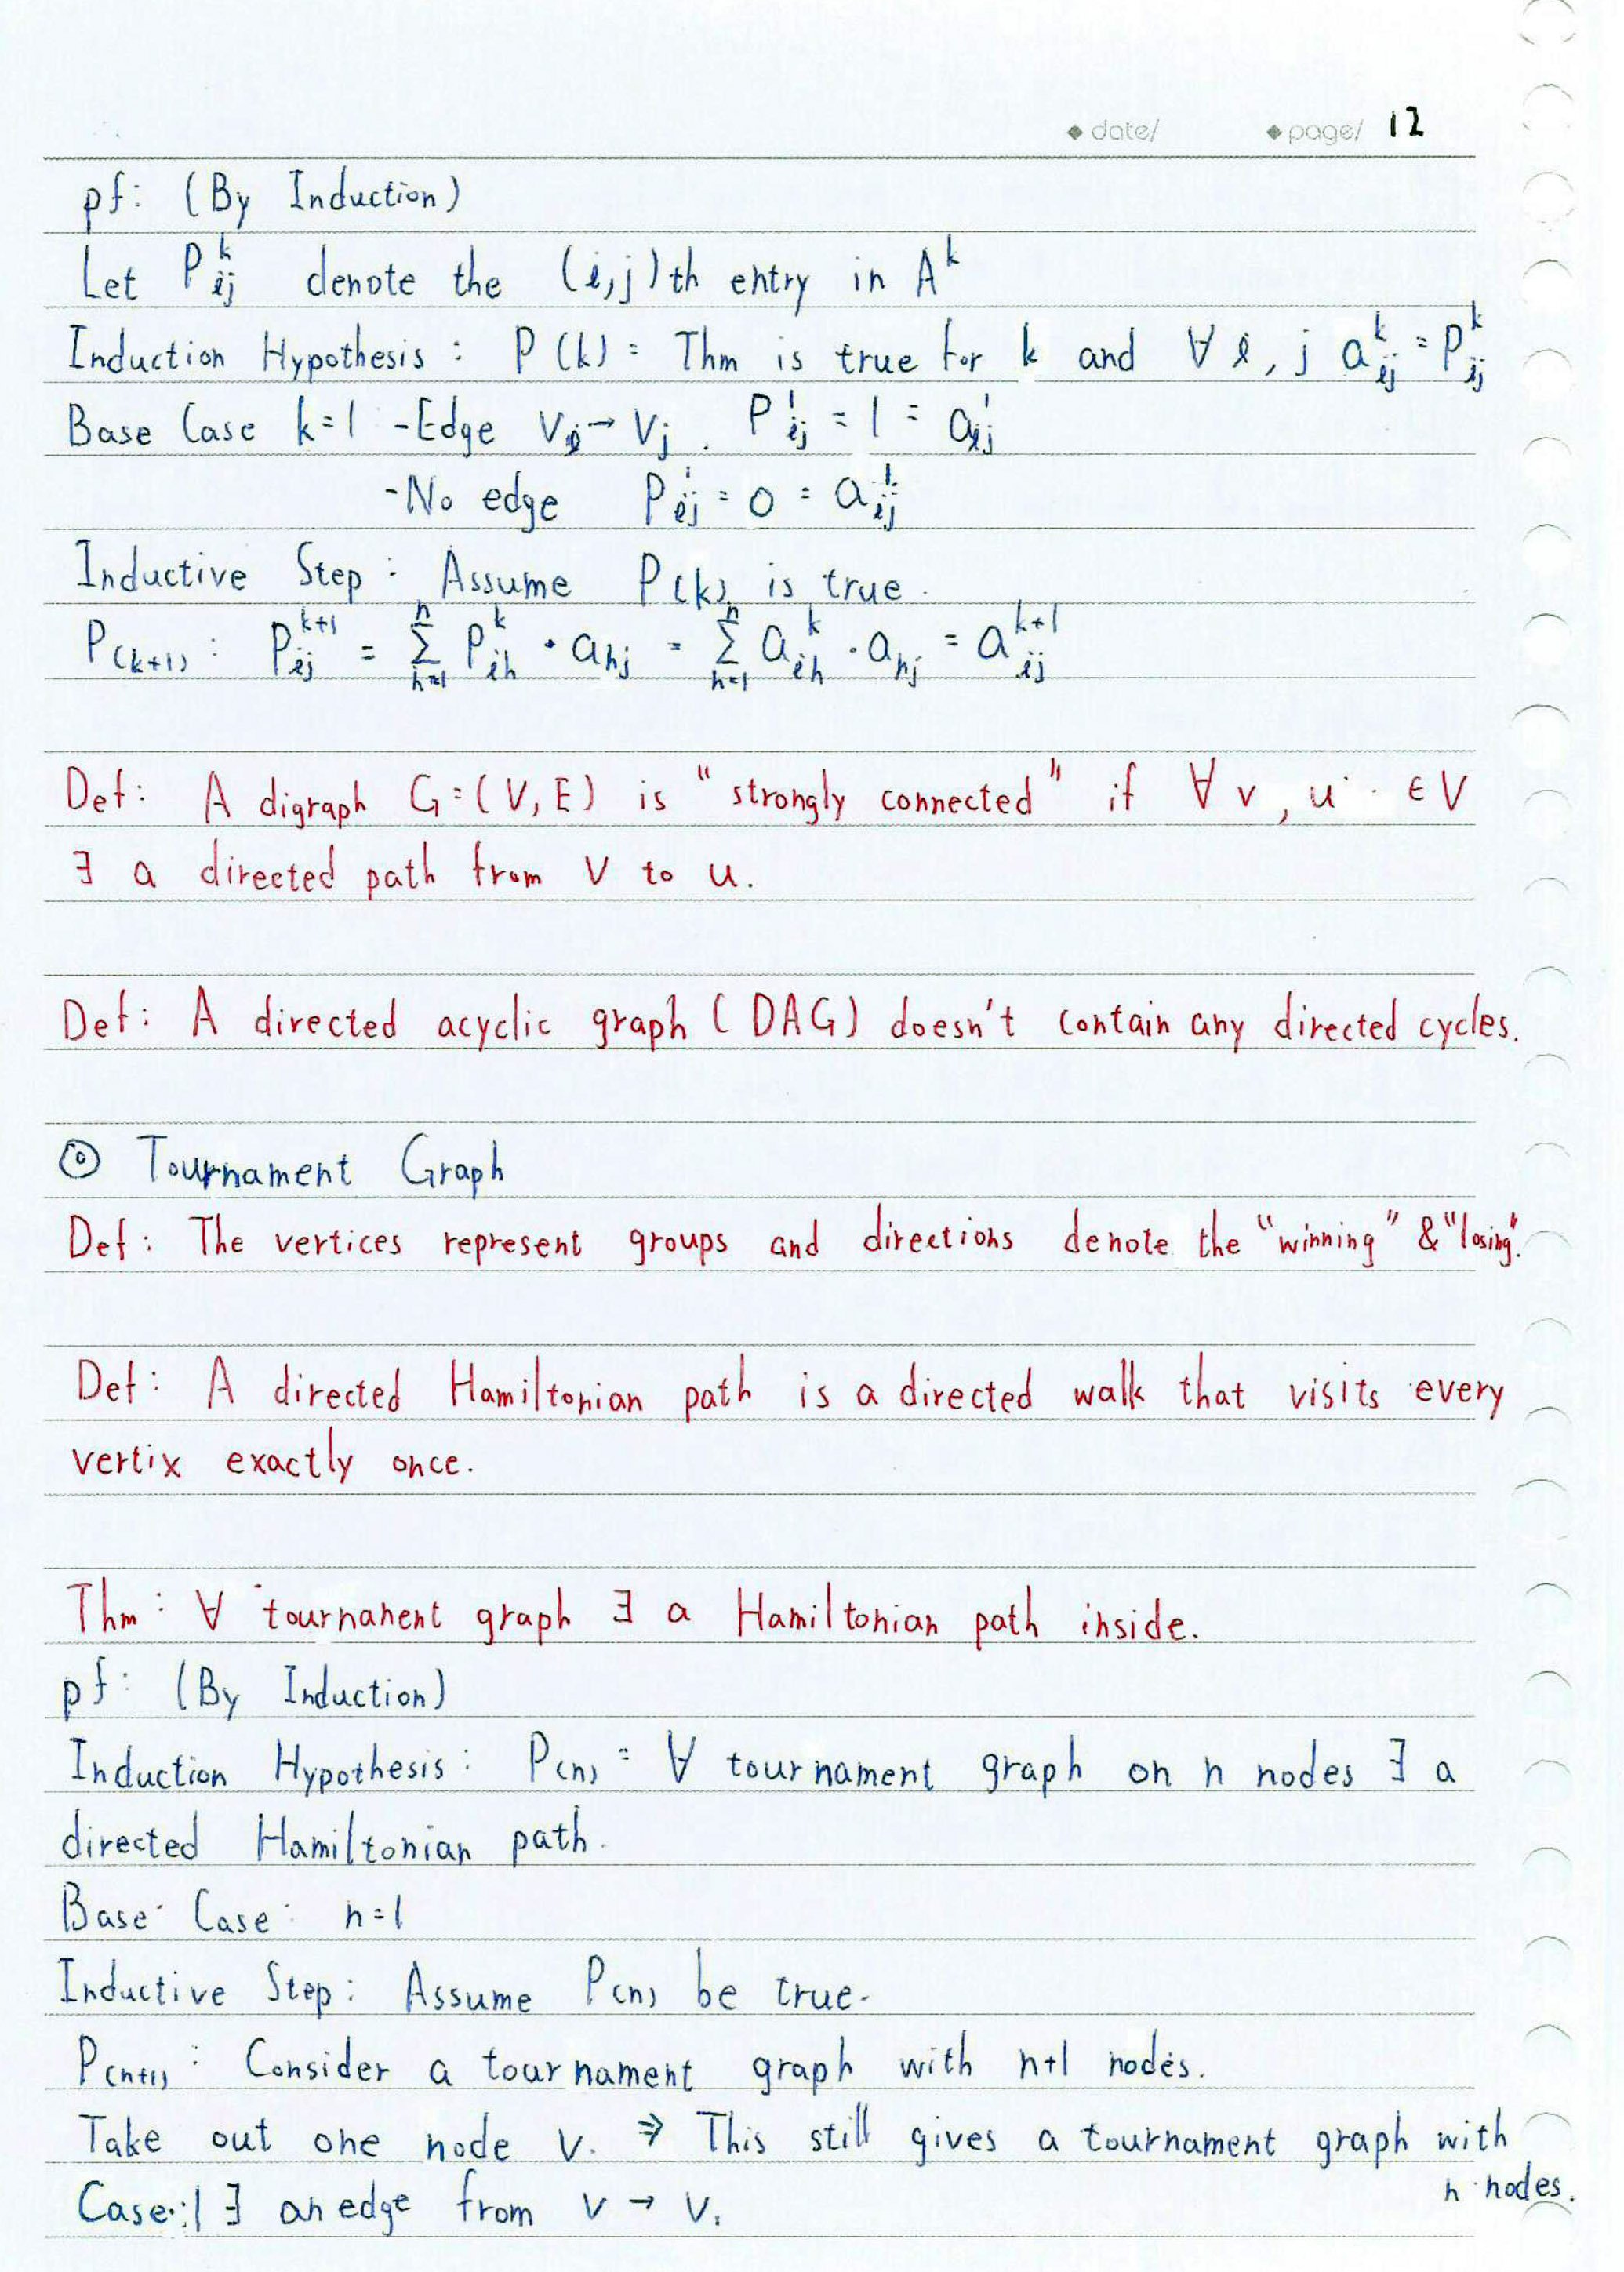 ◆ date/ ◆ page/ 12
pf: (By Induction)
Let P^k_ij denote the (i,j)th entry in A^k
Induction Hypothesis: P(k) = Thm is true for k and ∀ i, j a^k_ij = P^k_ij
Base Case k=1 -Edge V_i→V_j. P^1_ij = 1 = a^1_ij
-No edge P^1_ij = 0 = a^1_ij
Inductive Step: Assume P(k) is true.
P(k+1): P^k+1_ij = Σ^n_h=1 P^k_ih · a_hj = Σ^n_h=1 a^k_ih · a_hj = a^k+1_ij
Def: A digraph G=(V,E) is "strongly connected" if ∀ v, u ∈V
∃ a directed path from v to u.
Def: A directed acyclic graph (DAG) doesn't contain any directed cycles.
⊙ Tournament Graph
Def: The vertices represent groups and directions denote the "winning" & "losing".
Def: A directed Hamiltonian path is a directed walk that visits every
vertix exactly once.
Thm: ∀ tournament graph ∃ a Hamiltonian path inside.
pf: (By Induction)
Induction Hypothesis: P(n) = ∀ tournament graph on n nodes ∃ a
directed Hamiltonian path.
Base Case: n=1
Inductive Step: Assume P(n) be true.
P(n+1): Consider a tournament graph with n+1 nodes.
Take out one node v. ⇒ This still gives a tournament graph with
n nodes.
Case:1 ∃ an edge from v → v₁